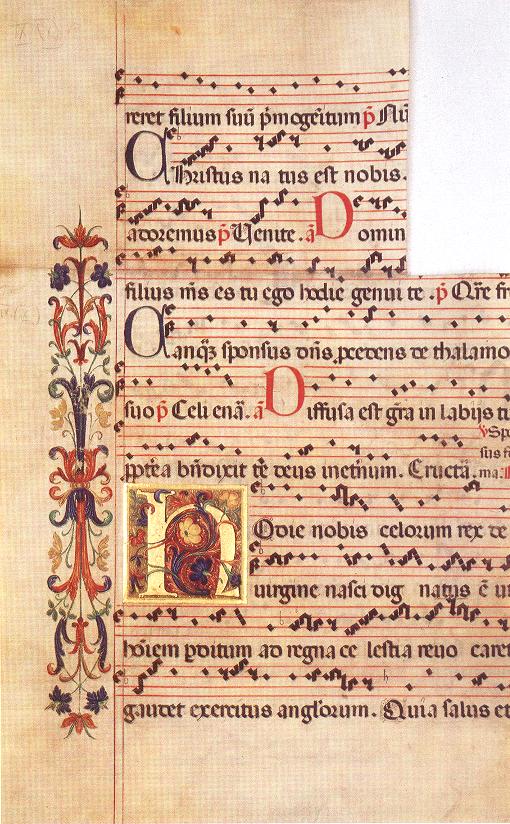 reret filium suũ p̃mogeĩtum p̃ Nũ
Christus na tus est nobis.
adoremus p̃ Uenite. ã Domin
filius m̃s es tu ego hodie genui te. p̃ Q̃re fr
Tanqꝫ sponsus dñs ꝓcedens de thalamo
suo p̃ Celi enã. ã Diffusa est gr̃a in labijs tu
℣ Spe
sus fo
ꝓpt̃ea bñdixit te deus inet̃num. Eructã. ma:
Hodie nobis celorum rex de
uirgine nasci dig natus ẽ ut
hõiem ꝑditum ad regna ce lestia reuo caret
gaudet exercitus angl'orum. Quia salus et